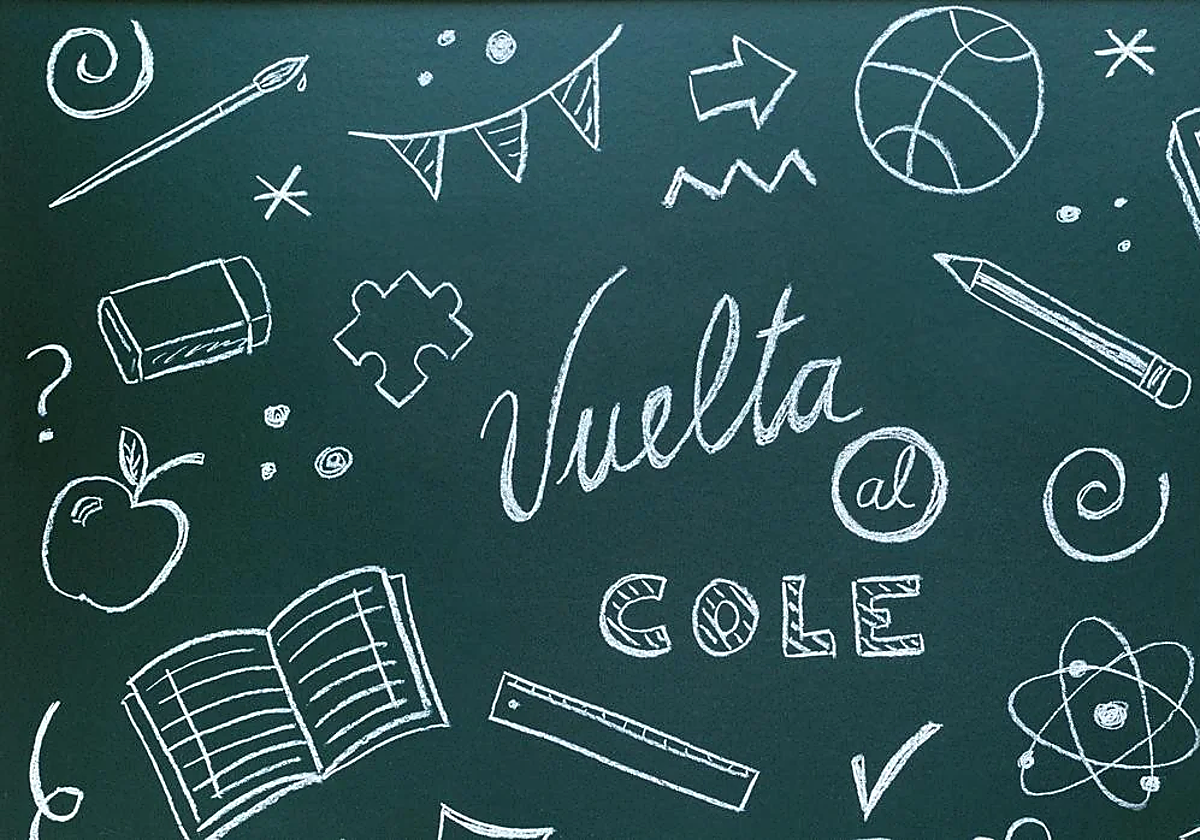 Vuelta
al
COLE
?